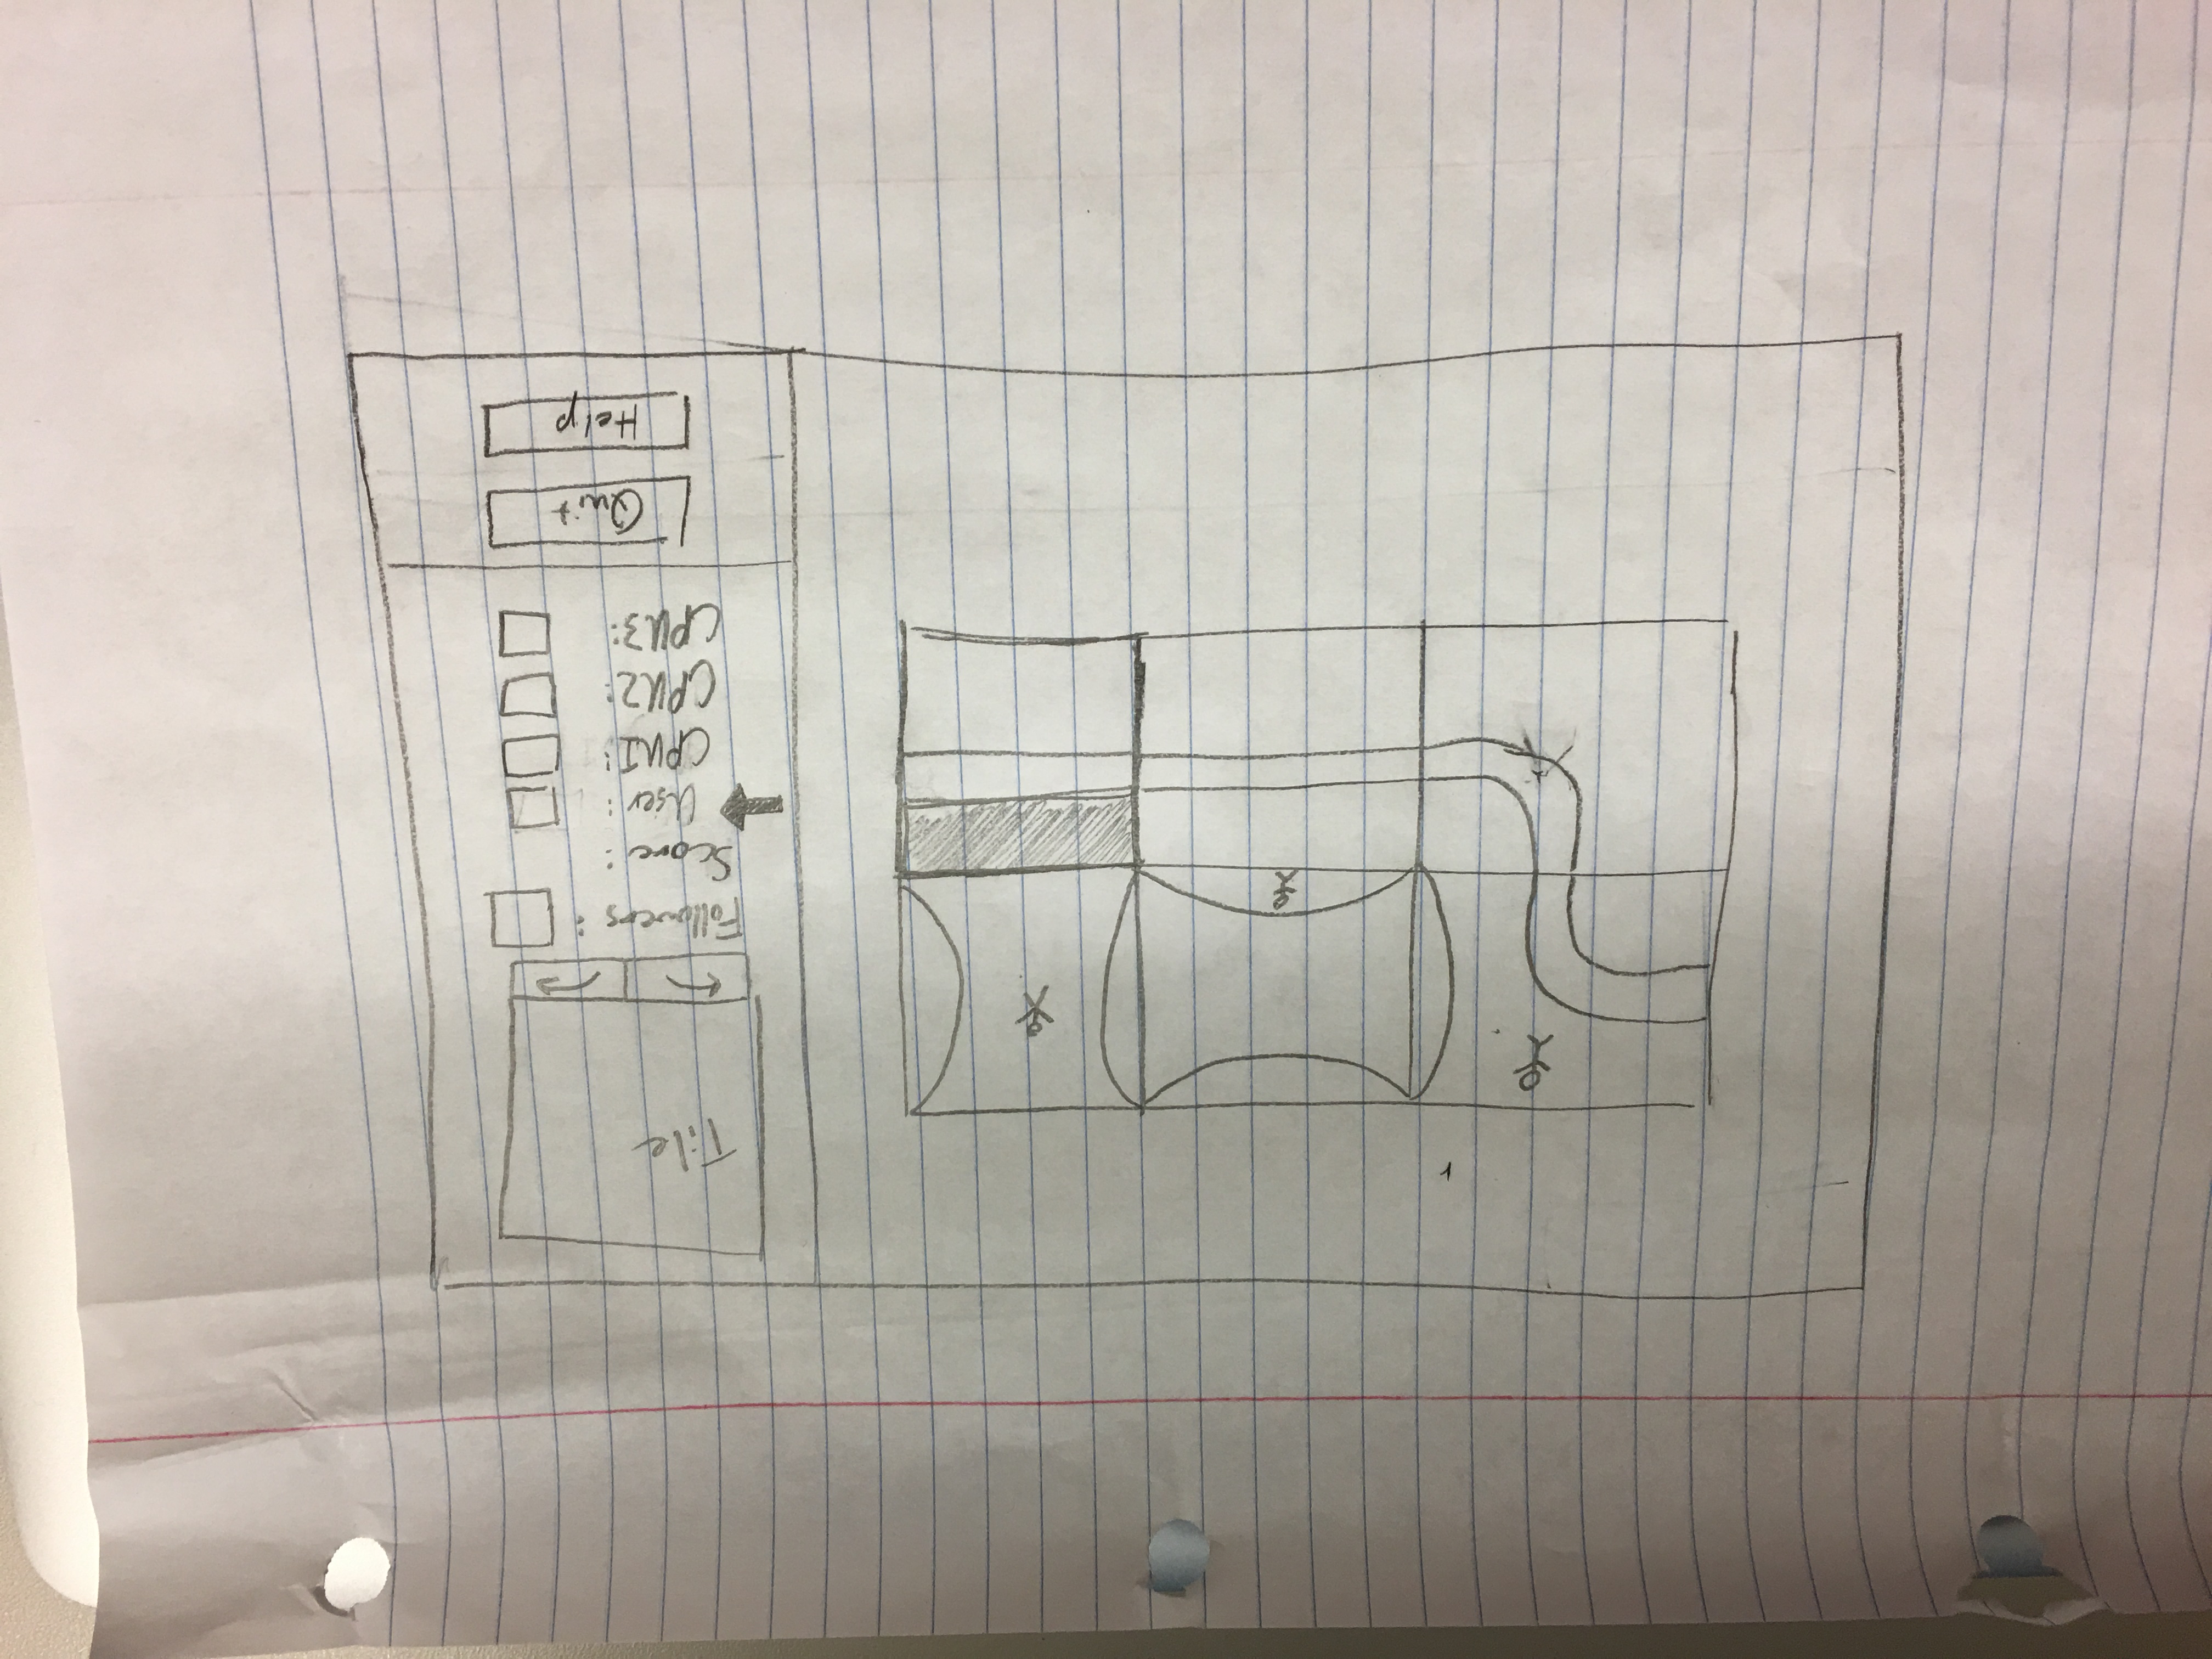 Tile
Followers:
Score:
User:
CPU1:
CPU2:
CPU3:
Quit
Help